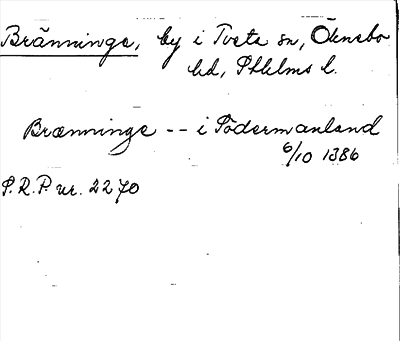 Bränninge, by i Tveta sn, Öknebo
hd, Sthlms l.
Brænninge -- i Södermanland
6/10 1386
S.R.P. nr. 2270